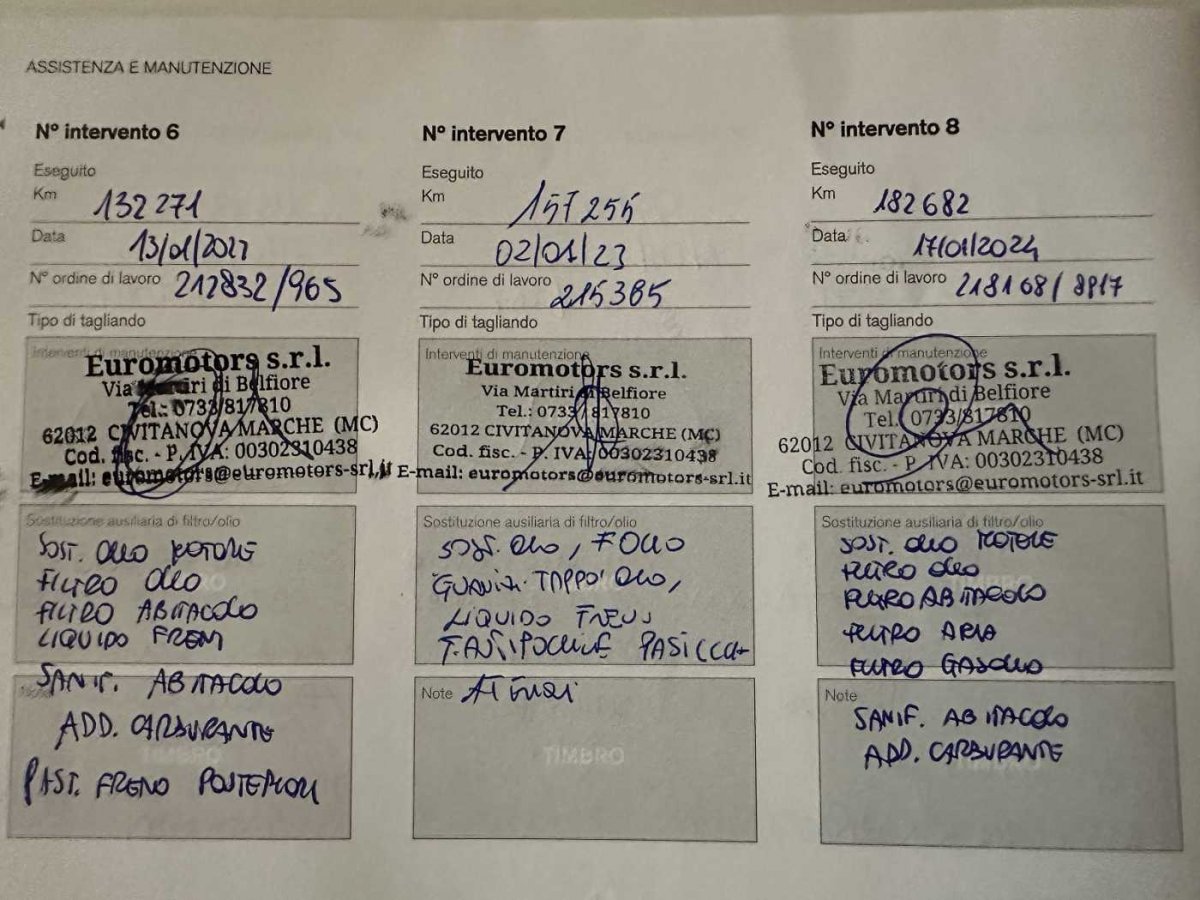 ASSISTENZA E MANUTENZIONE
N° intervento 6
Eseguito
Km 132 271
Data 13/01/2022
N° ordine di lavoro 212832/965
Tipo di tagliando
Interventi di manutenzione
Euromotors s.r.l.
Via Martiri di Belfiore
Tel.: 0733/817810
62012 CIVITANOVA MARCHE (MC)
Cod. fisc. - P. IVA: 00302310438
E-mail: euromotors@euromotors-srl.it
Sostituzione ausiliaria di filtro/olio
SOST. OLIO MOTORE
FILTRO OLIO
FILTRO ABITACOLO
LIQUIDO FRENI
SANIF. ABITACOLO
ADD. CARBURANTE
PAST. FRENO POSTERIORI
N° intervento 7
Eseguito
Km 157 255
Data 02/01/23
N° ordine di lavoro 215385
Tipo di tagliando
Interventi di manutenzione
Euromotors s.r.l.
Via Martiri di Belfiore
Tel.: 0733/817810
62012 CIVITANOVA MARCHE (MC)
Cod. fisc. - P. IVA: 00302310438
E-mail: euromotors@euromotors-srl.it
Sostituzione ausiliaria di filtro/olio
SOST. OLIO,
TAPPO OLIO,
LIQUIDO FRENI
Note
TIMBRO
N° intervento 8
Eseguito
Km 182682
Data 17/01/2024
N° ordine di lavoro 218168/8917
Tipo di tagliando
Interventi di manutenzione
Euromotors s.r.l.
Via Martiri di Belfiore
Tel. 0733/817810
62012 CIVITANOVA MARCHE (MC)
Cod. fisc. - P. IVA: 00302310438
E-mail: euromotors@euromotors-srl.it
Sostituzione ausiliaria di filtro/olio
SOST. OLIO MOTORE
FILTRO OLIO
FILTRO ABITACOLO
FILTRO ARIA
FILTRO GASOLIO
Note
SANIF. ABITACOLO
ADD. CARBURANTE